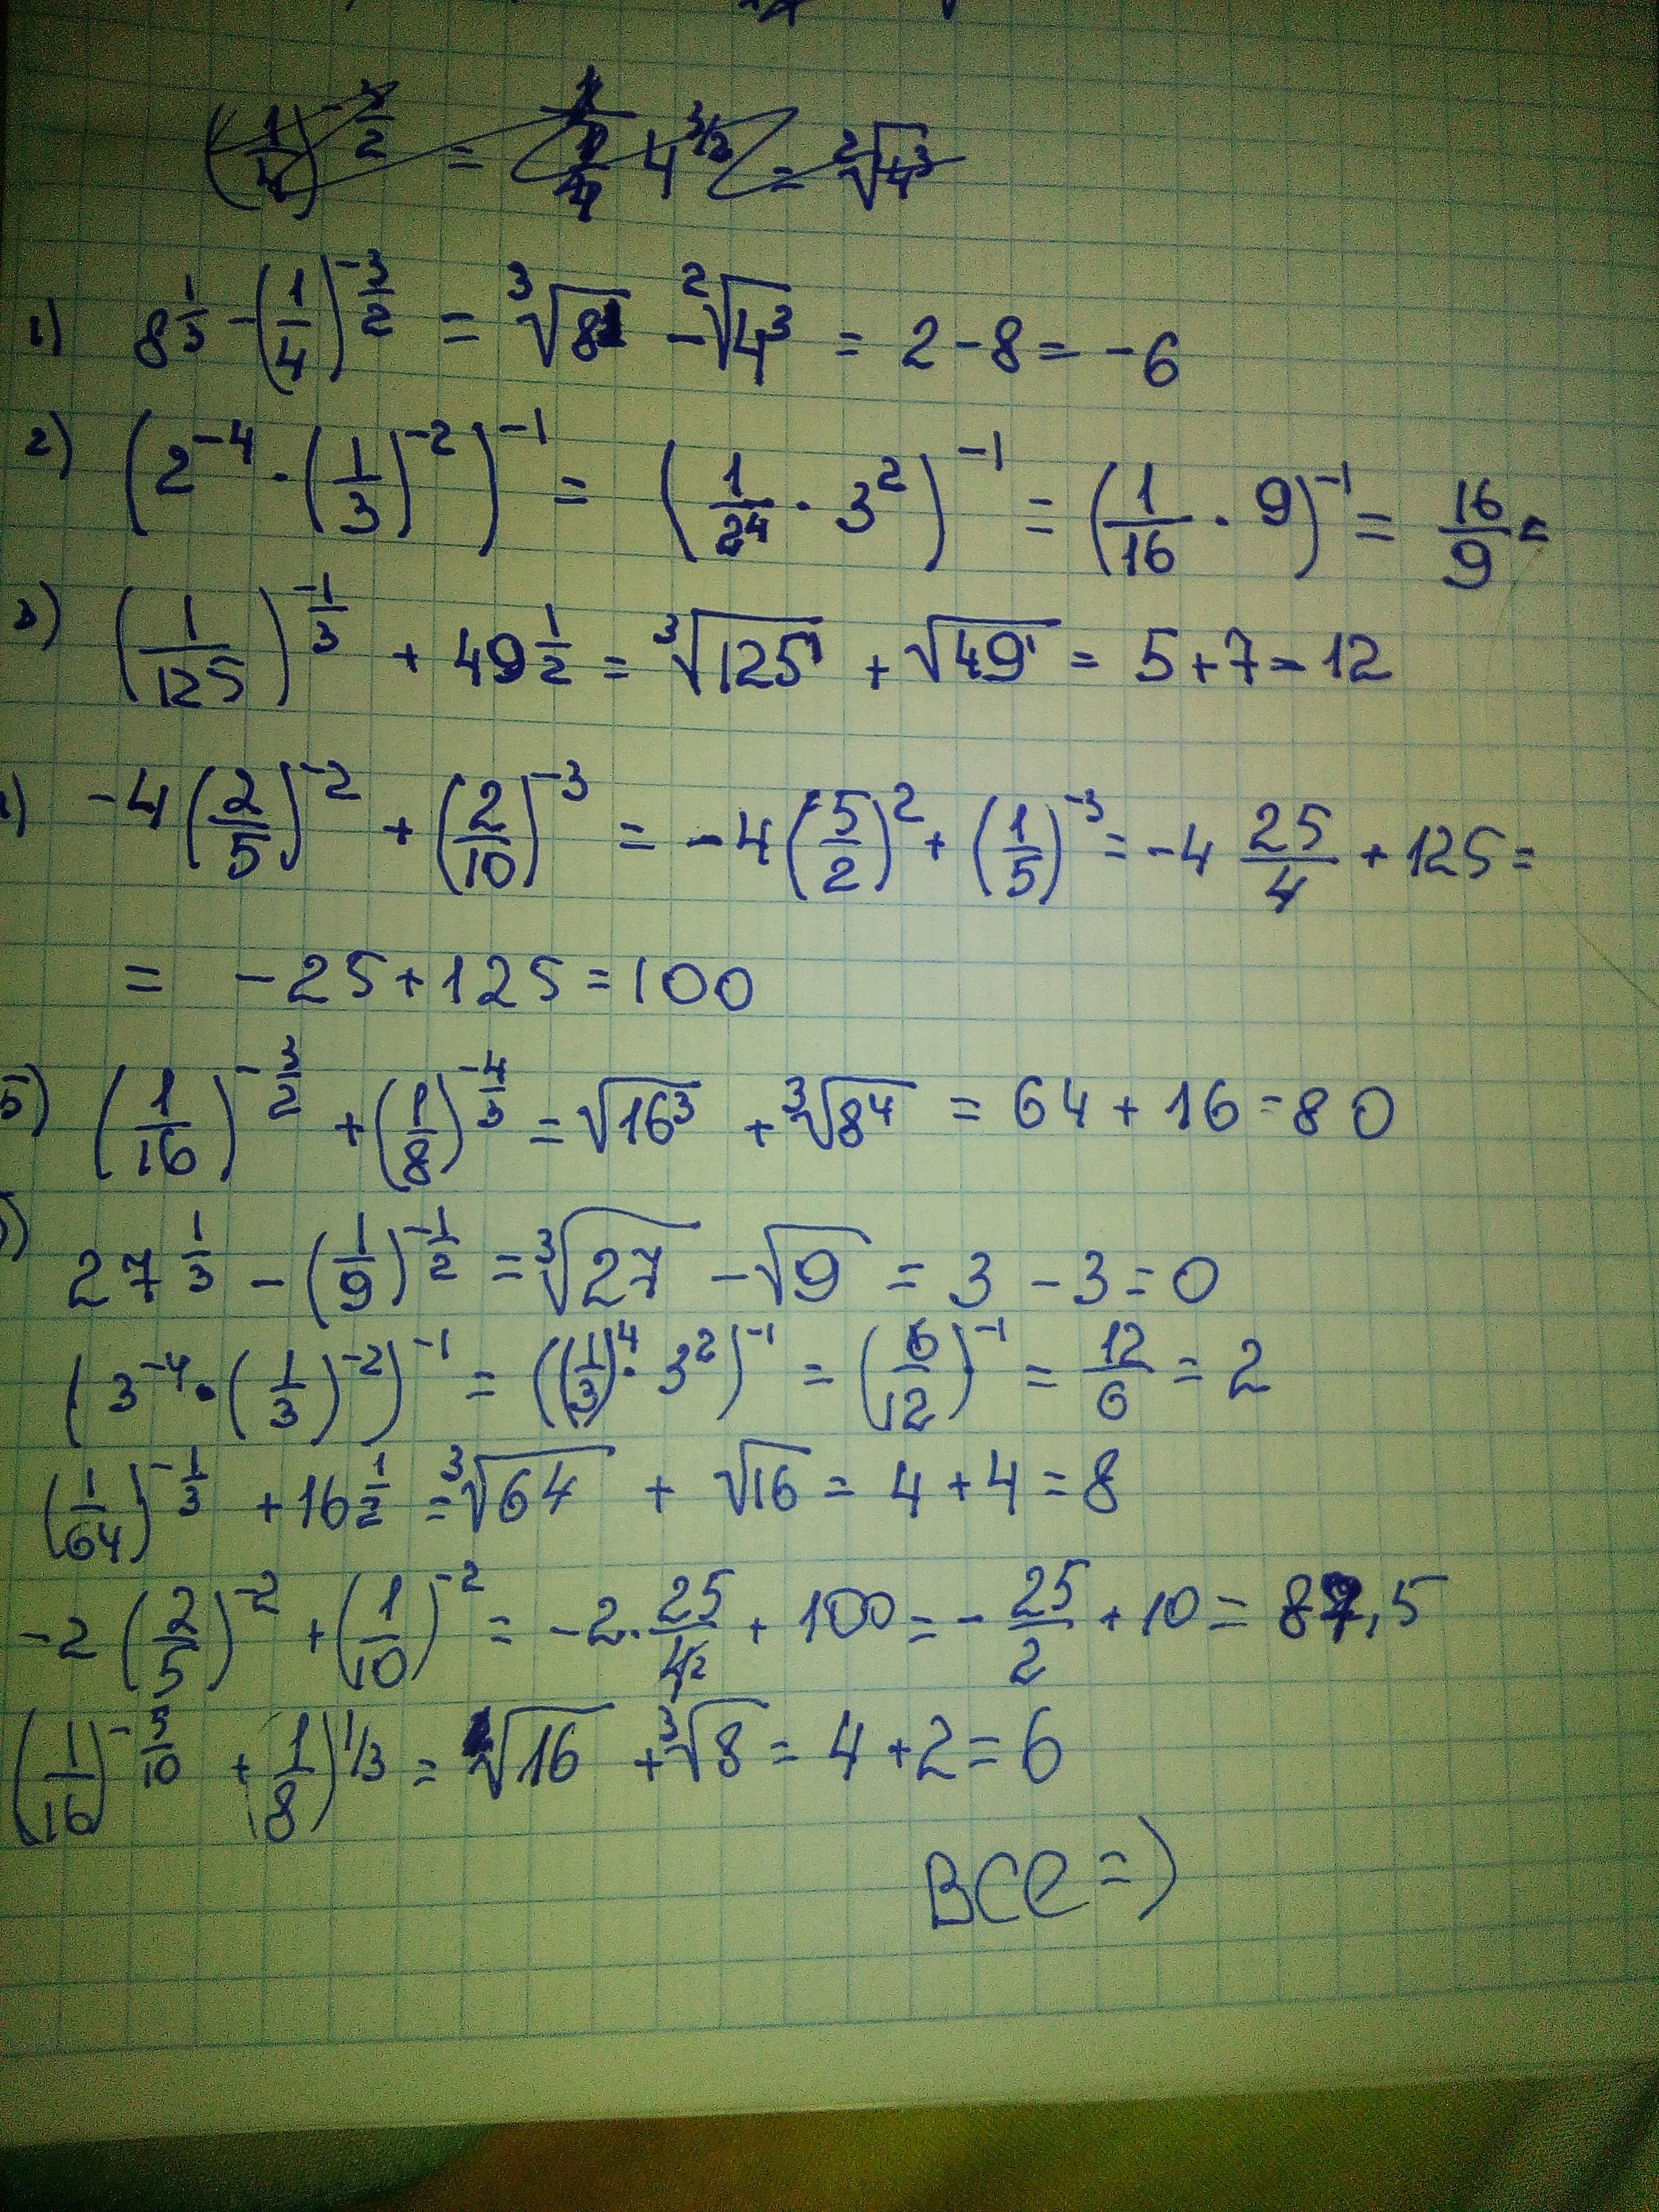 1) 8^{1/3} - (1/4)^{-3/2} = ³√8 - ²√4³ = 2 - 8 = -6
2) (2^{-4} · (1/3)^{-2})^{-1} = (1/2⁴ · 3²)^{-1} = (1/16 · 9)^{-1} = 16/9 =
3) (1/125)^{-1/3} + 49^{1/2} = ³√125 + √49 = 5 + 7 = 12
) -4(2/5)^{-2} + (2/10)^{-3} = -4(5/2)² + (1/5)^{-3} = -4 25/4 + 125 =
= -25 + 125 = 100
5) (1/16)^{-3/2} + (1/8)^{-4/3} = √16³ + ³√8⁴ = 64 + 16 = 80
) 27^{1/3} - (1/9)^{-1/2} = ³√27 - √9 = 3 - 3 = 0
(3^{-4} · (1/3)^{-2})^{-1} = ((1/3)⁴ · 3²)^{-1} = (6/12)^{-1} = 12/6 = 2
(1/64)^{-1/3} + 16^{1/2} = ³√64 + √16 = 4 + 4 = 8
-2(2/5)^{-2} + (1/10)^{-2} = -2 · 25/4 + 100 = -25/2 + 10 = 87,5
(1/16)^{-5/10} + (1/8)^{1/3} = √16 + ³√8 = 4 + 2 = 6
ВСЕ =)